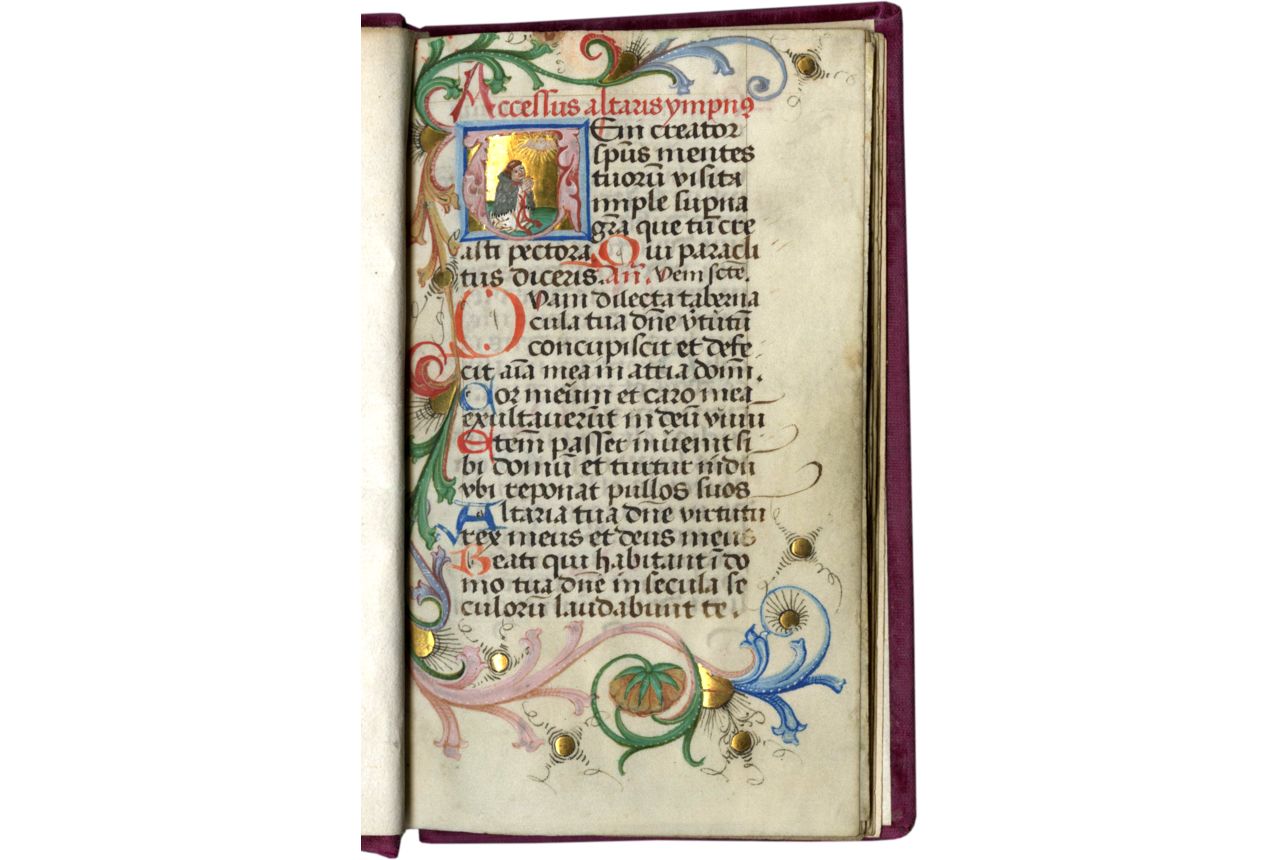 Accessus altaris ympnꝯ
Veni creator
sp̄us mentes
tuorū visita
imple sup̄na
gr̄a que tu cre
asti pectora. Qui paracli
tus diceris. An̄. Veni sc̄te.
Qvam dilecta taberna
cula tua dn̄e v̄tutū
concupiscit et defe
cit aīa mea in atria domī.
Cor meūm et caro mea
exultauerūt in deū viuū
Etem̄ passer inuenit si
bi domū et turtur nidū
vbi reponat pullos suos
Altaria tua dn̄e virtutū
rex meus et deus meus
Beati qui habitant ī do
mo tua dn̄e in secula se
culorū laudabunt te.